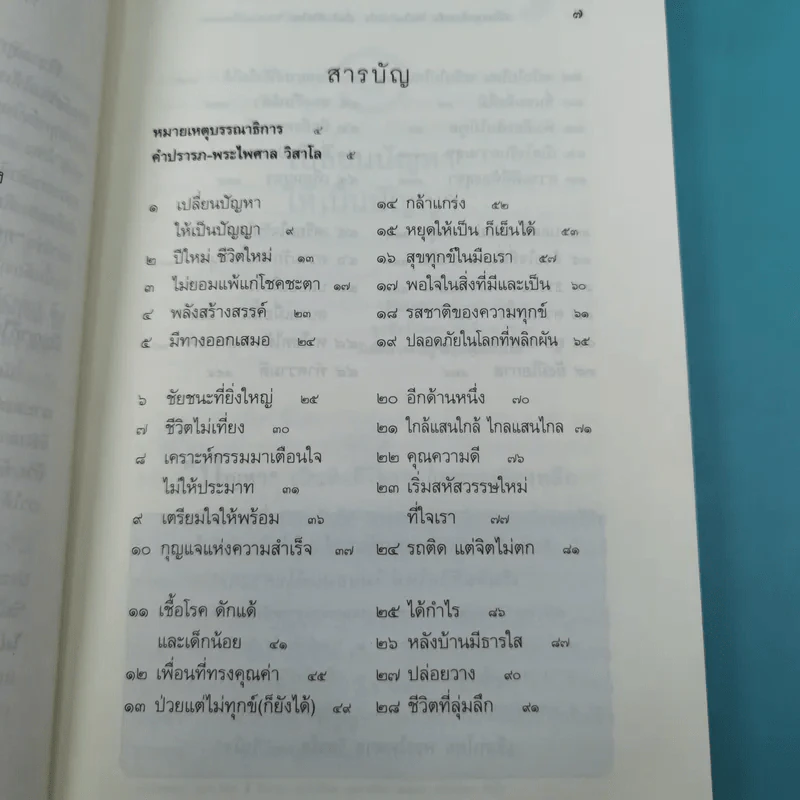 ๗
สารบัญ
หมายเหตุบรรณาธิการ ๔
คำปรารภ-พระไพศาล วิสาโล ๕
๑ เปลี่ยนปัญหา
ให้เป็นปัญญา ๙
๒ ปีใหม่ ชีวิตใหม่ ๑๓
๓ ไม่ยอมแพ้แก่โชคชะตา ๑๗
๔ พลังสร้างสรรค์ ๒๓
๕ มีทางออกเสมอ ๒๔
๖ ชัยชนะที่ยิ่งใหญ่ ๒๕
๗ ชีวิตไม่เที่ยง ๓๐
๘ เคราะห์กรรมมาเตือนใจ
ไม่ให้ประมาท ๓๑
๙ เตรียมใจให้พร้อม ๓๖
๑๐ กุญแจแห่งความสำเร็จ ๓๗
๑๑ เชื้อโรค ดักแด้
และเด็กน้อย ๔๑
๑๒ เพื่อนที่ทรงคุณค่า ๔๕
๑๓ ป่วยแต่ไม่ทุกข์(ก็ยังได้) ๔๙
๑๔ กล้าแกร่ง ๕๒
๑๕ หยุดให้เป็น ก็เย็นได้ ๕๓
๑๖ สุขทุกข์ในมือเรา ๕๗
๑๗ พอใจในสิ่งที่มีและเป็น ๖๐
๑๘ รสชาติของความทุกข์ ๖๑
๑๙ ปลอดภัยในโลกที่พลิกผัน ๖๕
๒๐ อีกด้านหนึ่ง ๗๐
๒๑ ใกล้แสนใกล้ ไกลแสนไกล ๗๑
๒๒ คุณความดี ๗๖
๒๓ เริ่มสหัสวรรษใหม่
ที่ใจเรา ๗๗
๒๔ รถติด แต่จิตไม่ตก ๘๑
๒๕ ได้กำไร ๘๖
๒๖ หลังบ้านมีธารใส ๘๗
๒๗ ปล่อยวาง ๙๐
๒๘ ชีวิตที่ลุ่มลึก ๙๑